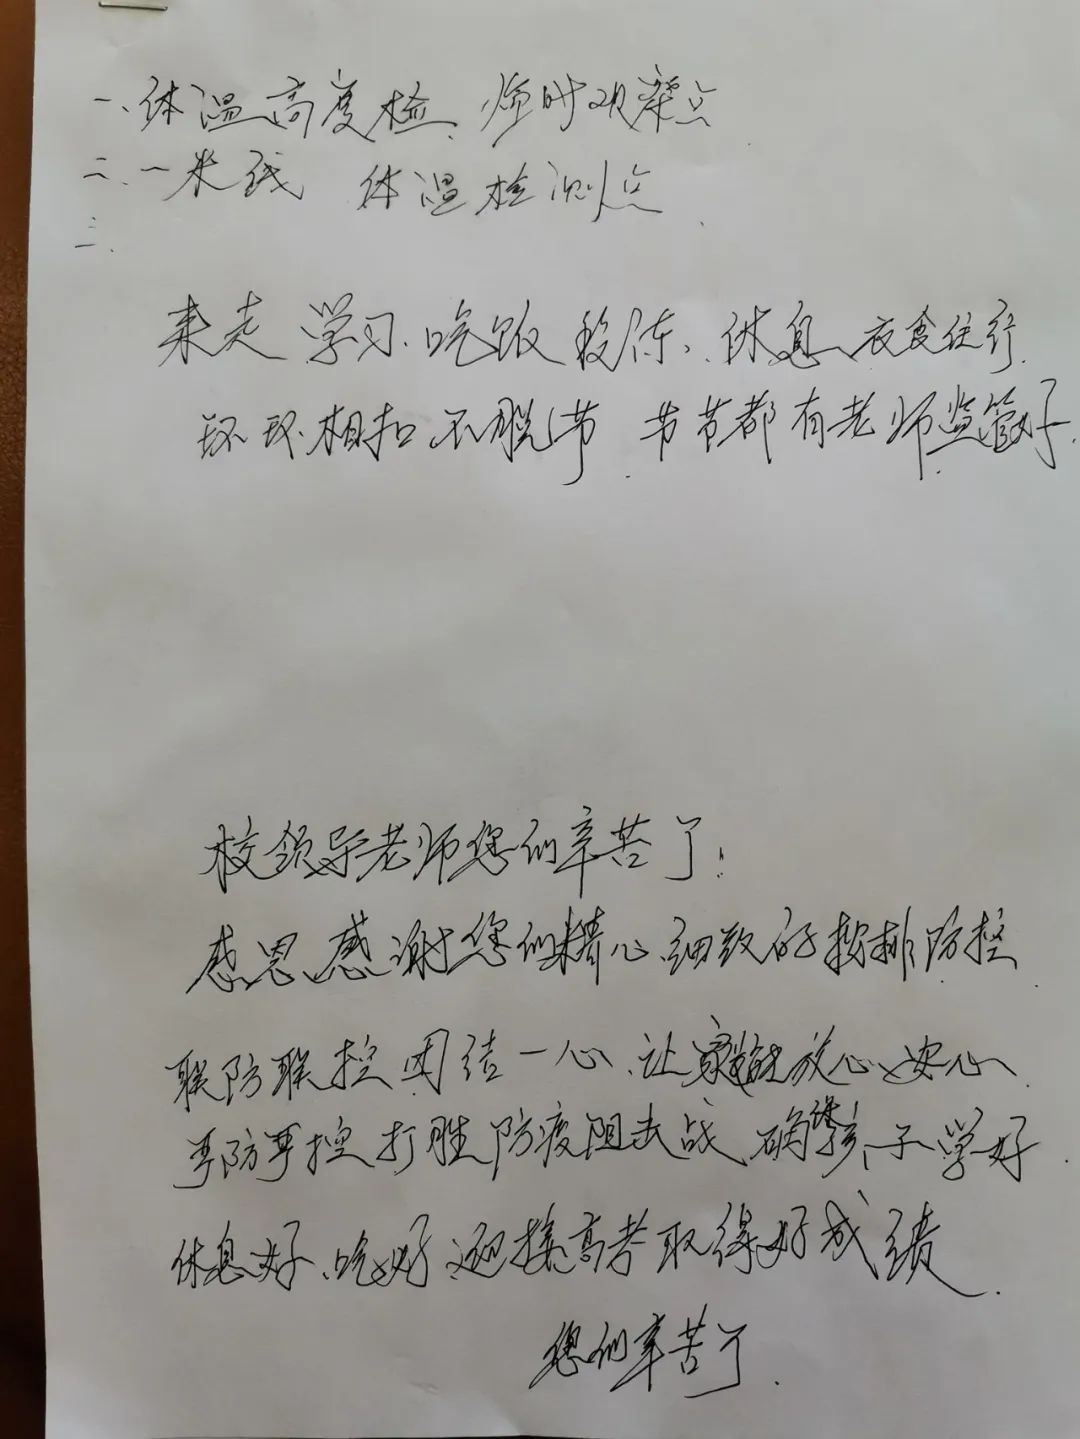 一、体温高度检、临时观察点
二、一米线 体温检测点.
三、
来走 学习、吃饭 、休息、衣食住行.
环环相扣、不脱节. 节节都有老师监管好.
校领导老师您们辛苦了!
感恩、感谢您们精心、细致的按排防控.
联防联控团结一心、让家长放心、安心.
严防严控打胜防疫阻击战、确保孩子学好.
休息好、吃好、迎接高考取得好成绩.
您们辛苦了.